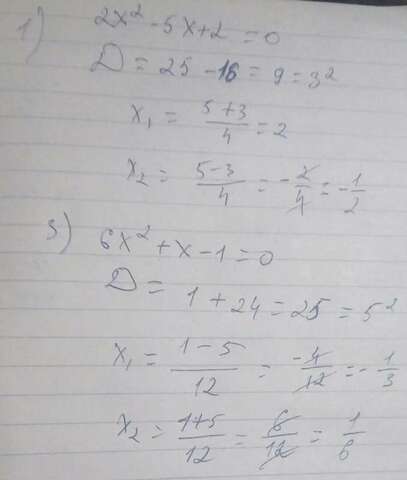 1) 2x² - 5x + 2 = 0
D = 25 - 16 = 9 = 3²
x₁ = (5+3)/4 = 2
x₂ = (5-3)/4 = -2/4 = -1/2
3) 6x² + x - 1 = 0
D = 1 + 24 = 25 = 5²
x₁ = (1-5)/12 = -4/12 = -1/3
x₂ = (1+5)/12 = 6/12 = 1/6